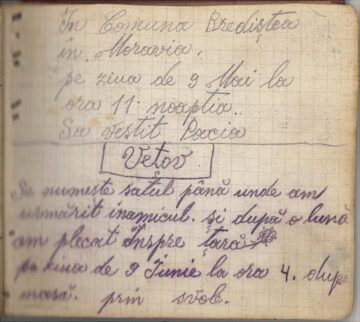 În Comuna Bredistea
în Moravia.
pe ziua de 9 Mai la
ora 11 noaptia.
Sa vestit Pacia
Vetov
Se numeste satul până unde am
usmărit inamicul. și după o lună
am plecat înspre țară
pe ziua de 9 Iunie la ora 4. dupo
masă. prin svole.